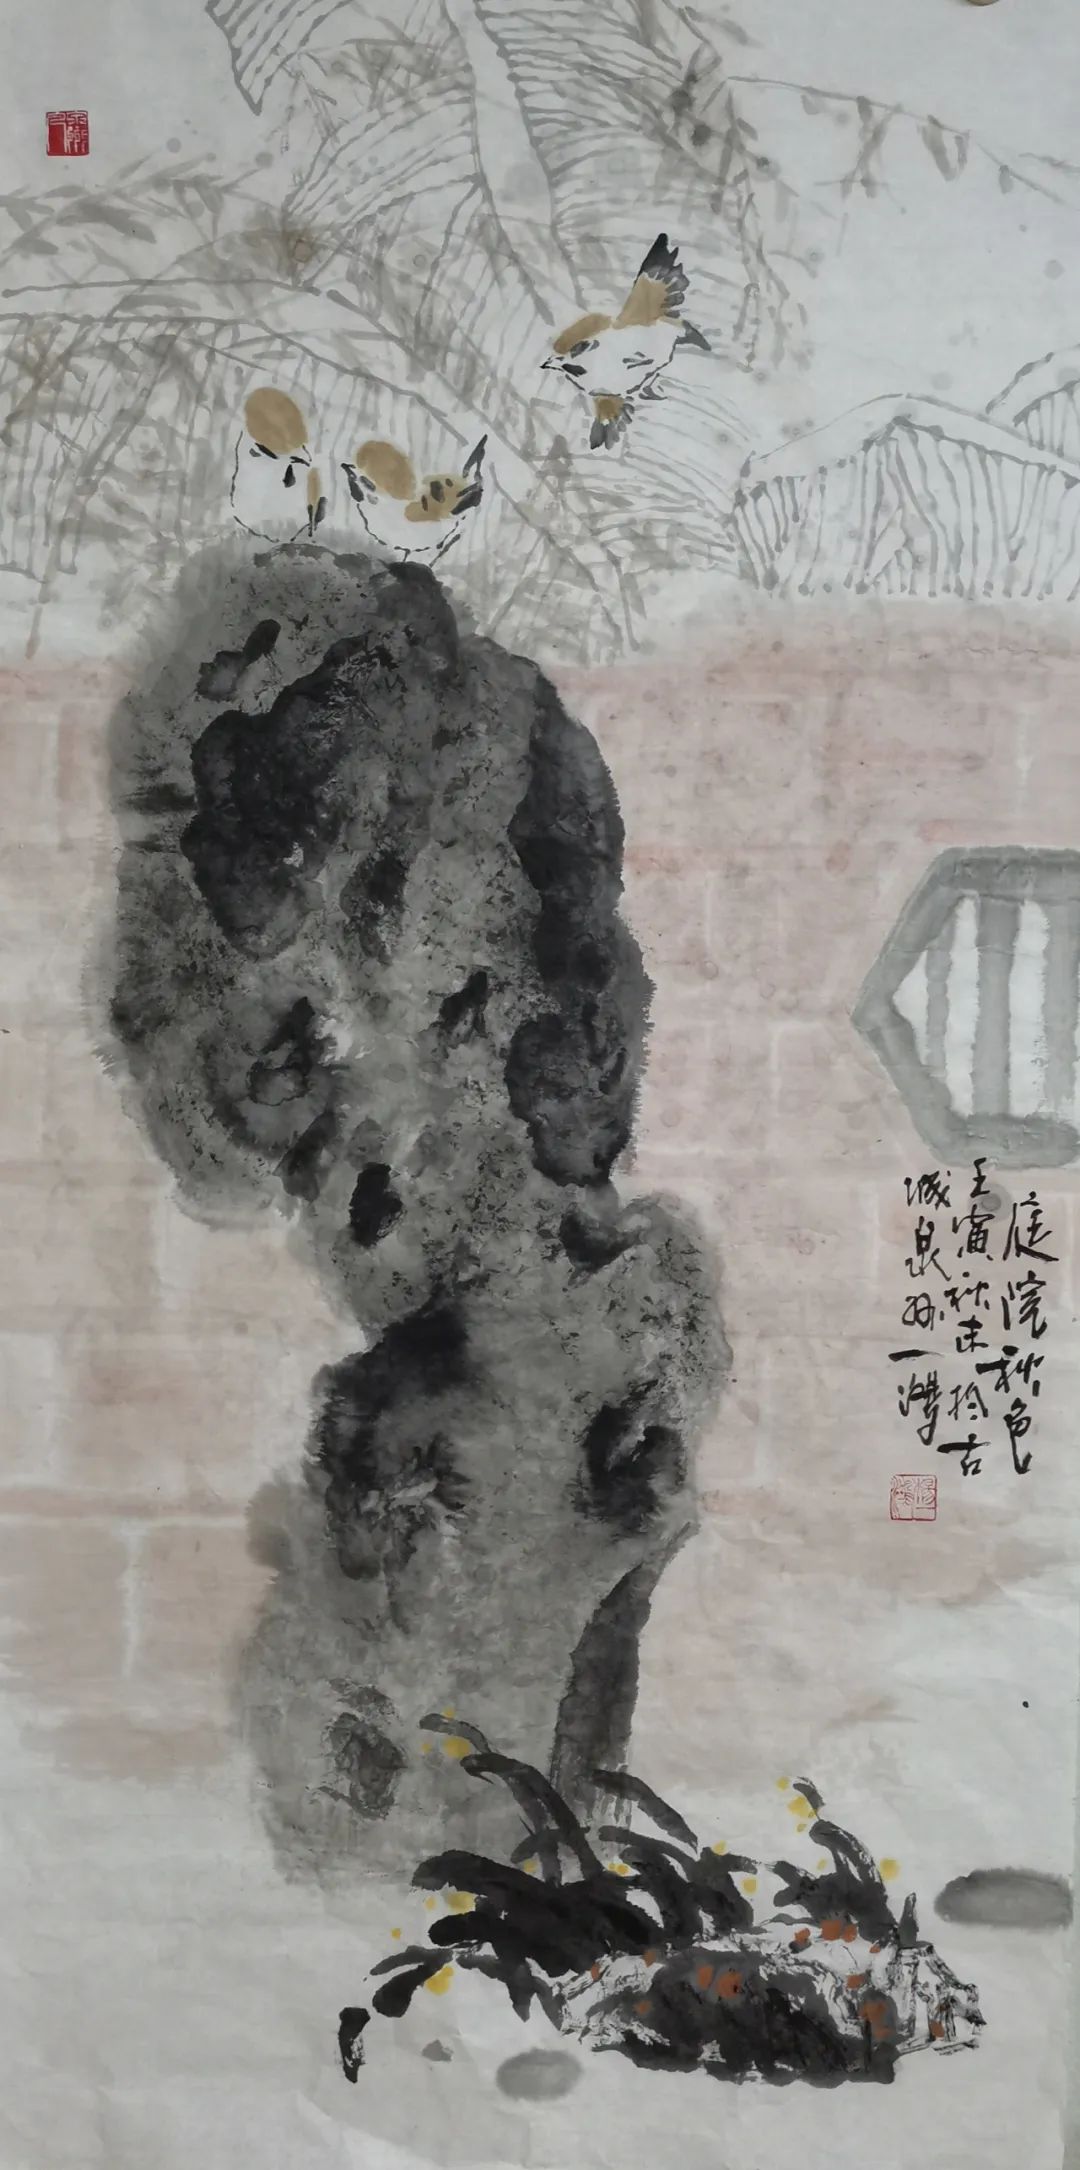 庭院秋色
壬寅秋末於古
城泉州一鸿